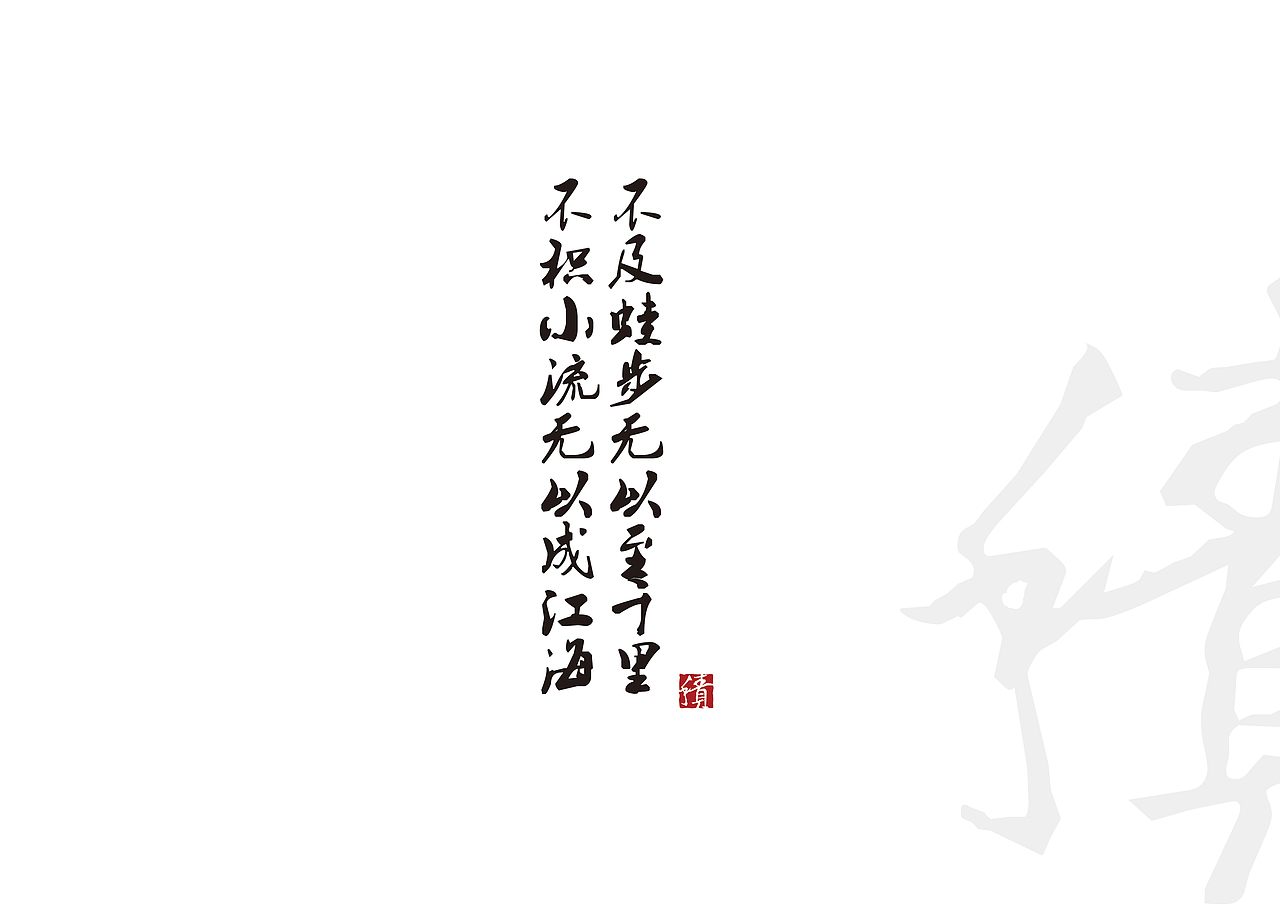 不及蛙步无以至千里
不积小流无以成江海
積
積